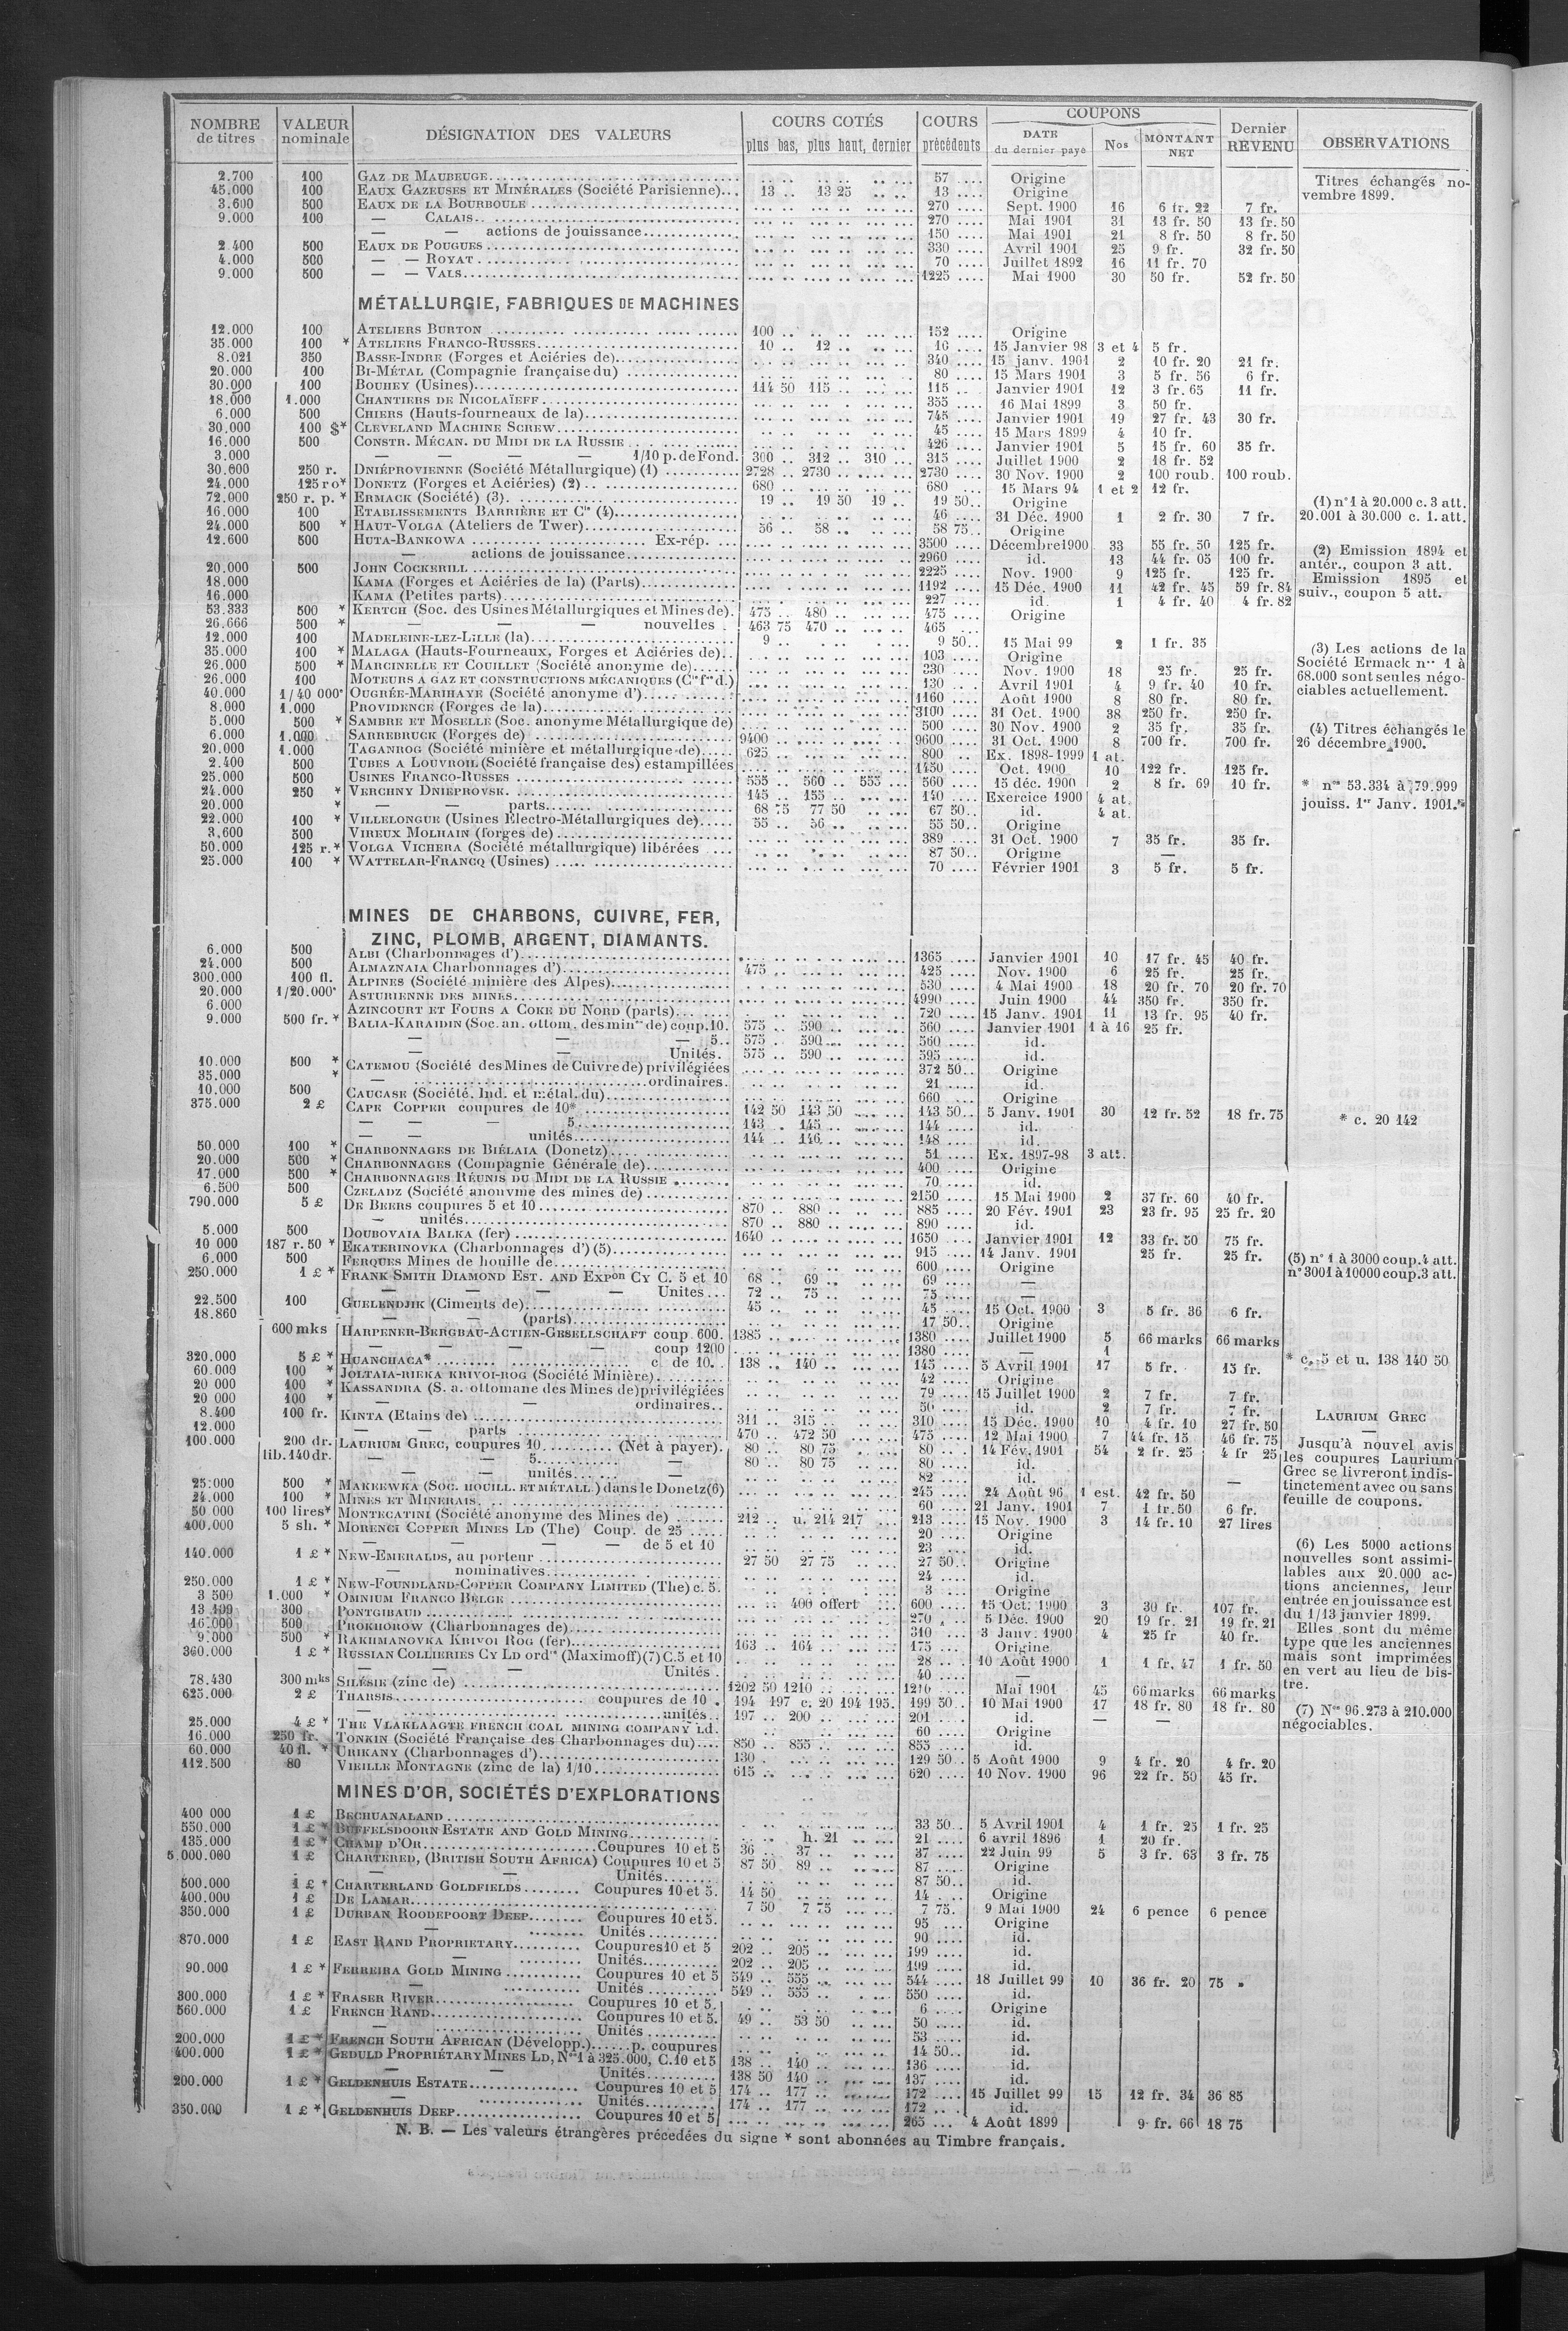 NOMBRE de titres | VALEUR nominale | DÉSIGNATION DES VALEURS | COURS COTÉS plus bas, plus haut, dernier | COURS précédents | COUPONS DATE du dernier payé | Nos | MONTANT NET | Dernier REVENU | OBSERVATIONS
2.700 100 GAZ DE MAUBEUGE 57 Origine
45.000 100 EAUX GAZEUSES ET MINÉRALES (Société Parisienne) 13 13 25 13 Origine
3.600 500 EAUX DE LA BOURBOULE 270 Sept. 1900 16 6 fr. 22 7 fr.
9.000 100 — CALAIS 270 Mai 1901 31 13 fr. 50 13 fr. 50
— — actions de jouissance 150 Mai 1901 21 8 fr. 50 8 fr. 50
2.400 500 EAUX DE POUGUES 330 Avril 1901 25 9 fr. 32 fr. 50
4.000 500 — — ROYAT 70 Juillet 1892 16 11 fr. 70
9.000 500 — — VALS 1225 Mai 1900 30 50 fr. 52 fr. 50
Titres échangés novembre 1899.
MÉTALLURGIE, FABRIQUES DE MACHINES
12.000 100 ATELIERS BURTON 100 152 Origine
35.000 100 * ATELIERS FRANCO-RUSSES 10 12 16 15 Janvier 98 3 et 4 5 fr.
8.021 350 BASSE-INDRE (Forges et Aciéries de) 340 15 janv. 1901 2 10 fr. 20 21 fr.
20.000 100 BI-MÉTAL (Compagnie française du) 80 15 Mars 1901 3 5 fr. 56 6 fr.
30.000 100 BOUHEY (Usines) 114 50 115 115 Janvier 1901 12 3 fr. 65 11 fr.
18.000 1.000 CHANTIERS DE NICOLAÏEFF 355 16 Mai 1899 3 50 fr.
6.000 500 CHIERS (Hauts-fourneaux de la) 745 Janvier 1901 19 27 fr. 43 30 fr.
30.000 100 $* CLEVELAND MACHINE SCREW 45 15 Mars 1899 4 10 fr.
16.000 500 CONSTR. MÉCAN. DU MIDI DE LA RUSSIE 426 Janvier 1901 5 15 fr. 60 35 fr.
3.000 — — — — 1/10 p. de Fond. 300 312 310 315 Juillet 1900 2 18 fr. 52
30.000 250 r. DNIÉPROVIENNE (Société Métallurgique) (1) 2728 2730 2730 30 Nov. 1900 2 100 roub. 100 roub.
24.000 125 ro* DONETZ (Forges et Aciéries) (2) 680 680 15 Mars 94 1 et 2 12 fr.
72.000 250 r. p. * ERMACK (Société) (3) 19 19 50 19 19 50 Origine
16.000 100 ETABLISSEMENTS BARRIÈRE ET Cie (4) 46 31 Déc. 1900 1 2 fr. 30 7 fr.
24.000 500 * HAUT-VOLGA (Ateliers de Twer) 56 58 58 75 Origine
12.600 500 HUTA-BANKOWA Ex-rép. 3500 Décembre 1900 33 55 fr. 50 125 fr.
— actions de jouissance 2960 id. 13 44 fr. 05 100 fr.
20.000 500 JOHN COCKERILL 2225 Nov. 1900 9 125 fr. 125 fr.
18.000 KAMA (Forges et Aciéries de la) (Parts) 1192 15 Déc. 1900 11 42 fr. 45 59 fr. 84
16.000 KAMA (Petites parts) 227 id. 1 4 fr. 40 4 fr. 82
53.333 500 * KERTCH (Soc. des Usines Métallurgiques et Mines de) 475 480 475 Origine
26.666 500 * — — — nouvelles 463 75 470 465
12.000 100 MADELEINE-LEZ-LILLE (la) 9 9 50 15 Mai 99 2 1 fr. 35
35.000 100 * MALAGA (Hauts-Fourneaux, Forges et Aciéries de) 103 Origine
26.000 500 * MARCINELLE ET COUILLET (Société anonyme de) 330 Nov. 1900 18 25 fr. 25 fr.
26.000 100 MOTEURS A GAZ ET CONSTRUCTIONS MÉCANIQUES (Cie fse d.) 130 Avril 1901 4 9 fr. 40 10 fr.
40.000 1/40 000e OUGRÉE-MARIHAYE (Société anonyme d') 1160 Août 1900 8 80 fr. 80 fr.
8.000 1.000 PROVIDENCE (Forges de la) 3100 31 Oct. 1900 38 250 fr. 250 fr.
5.000 500 * SAMBRE ET MOSELLE (Soc. anonyme Métallurgique de) 500 30 Nov. 1900 2 35 fr. 35 fr.
6.000 1.000 SARREBRUCK (Forges de) 9400 9600 31 Oct. 1900 8 700 fr. 700 fr.
20.000 1.000 TAGANROG (Société minière et métallurgique de) 625 800 Ex. 1898-1999 1 at.
2.400 500 TUBES A LOUVROIL (Société française des) estampillées 1450 Oct. 1900 10 122 fr. 125 fr.
25.000 500 USINES FRANCO-RUSSES 555 560 555 560 15 déc. 1900 2 8 fr. 69 10 fr.
24.000 250 * VERCHNY DNIEPROVSK 145 155 140 Exercice 1900 4 at.
20.000 * — — parts 68 75 77 50 67 50 id. 4 at.
22.000 100 * VILLELONGUE (Usines Électro-Métallurgiques de) 55 56 55 50 Origine
3,600 500 VIREUX MOLHAIN (forges de) 389 31 Oct. 1900 7 35 fr. 35 fr.
50.000 125 r.* VOLGA VICHERA (Société métallurgique) libérées 87 50 Origine —
25.000 100 * WATTELAR-FRANCQ (Usines) 70 Février 1901 3 5 fr. 5 fr.
(1) n° 1 à 20.000 c. 3 att.
20.001 à 30.000 c. 1. att.
(2) Emission 1894 et
antér., coupon 3 att.
Emission 1895 et
suiv., coupon 5 att.
(3) Les actions de la
Société Ermack nos 1 à
68.000 sont seules négo-
ciables actuellement.
(4) Titres échangés le
26 décembre 1900.
* nos 53.334 à 79.999
jouiss. 1er Janv. 1901.
MINES DE CHARBONS, CUIVRE, FER,
ZINC, PLOMB, ARGENT, DIAMANTS.
6.000 500 ALBI (Charbonnages d') 1365 Janvier 1901 10 17 fr. 45 40 fr.
24.000 500 ALMAZNAIA Charbonnages d') 475 425 Nov. 1900 6 25 fr. 25 fr.
300.000 100 fl. ALPINES (Société minière des Alpes) 530 4 Mai 1900 18 20 fr. 70 20 fr. 70
20.000 1/20.000e ASTURIENNE DES MINES 4990 Juin 1900 44 350 fr. 350 fr.
6.000 AZINCOURT ET FOURS A COKE DU NORD (parts) 720 15 Janv. 1901 11 13 fr. 95 40 fr.
9.000 500 fr. * BALIA-KARAIDIN (Soc. an. ottom. des mines de) coup. 10. 575 590 560 Janvier 1901 1 à 16 25 fr.
— — — 5 575 590 560 id.
— — Unités. 575 590 595 id.
10.000 500 * CATEMOU (Société des Mines de Cuivre de) privilégiées 372 50 Origine
35.000 * — ordinaires. 21 id.
10.000 500 CAUCASE (Société. Ind. et métal. du) 660 Origine
375.000 2 £ CAPE COPPER coupures de 10* 142 50 143 50 143 50 5 Janv. 1901 30 12 fr. 52 18 fr. 75 * c. 20 142
— — — 5 143 145 144 id.
— — unités 144 146 148 id.
50.000 100 * CHARBONNAGES DE BIÉLAIA (Donetz) 51 Ex. 1897-98 3 att.
20.000 500 * CHARBONNAGES (Compagnie Générale de) 400 Origine
17.000 500 * CHARBONNAGES RÉUNIS DU MIDI DE LA RUSSIE 70 id.
6.500 500 CZELADZ (Société anonyme des mines de) 2150 15 Mai 1900 2 37 fr. 60 40 fr.
790.000 5 £ DE BEERS coupures 5 et 10 870 880 885 20 Fév. 1901 23 23 fr. 95 25 fr. 20
— unités 870 880 890 id.
5.000 500 DOUBOVAIA BALKA (fer) 1640 1650 Janvier 1901 12 33 fr. 50 75 fr.
10 000 187 r. 50 * EKATERINOVKA (Charbonnages d') (5) 915 14 Janv. 1901 25 fr. 25 fr.
6.000 500 FERQUES Mines de houille de 600 Origine
250.000 1 £ * FRANK SMITH DIAMOND EST. AND EXPon CY C. 5 et 10 68 69 69 —
— — — — Unites 72 75 75 —
22.500 100 GUELENDJIK (Ciments de) 45 45 15 Oct. 1900 3 5 fr. 36 6 fr.
18.860 — — (parts) 17 50 Origine
600 mks HARPENER-BERGBAU-ACTIEN-GESELLSCHAFT coup. 600. 1385 1380 Juillet 1900 5 66 marks 66 marks
— — — — coup 1200 1380 — 1
320.000 5 £ * HUANCHACA* c. de 10. 138 140 145 5 Avril 1901 17 5 fr. 15 fr.
60.009 100 * JOLTAIA-RIEKA KRIVOI-ROG (Société Minière) 42 Origine
20 000 100 * KASSANDRA (S. a. ottomane des Mines de) privilégiées 79 15 Juillet 1900 2 7 fr. 7 fr.
20 000 100 * — — ordinaires 56 id. 2 7 fr. 7 fr.
8.400 100 fr. KINTA (Etains de) 311 315 310 15 Déc. 1900 10 4 fr. 10 27 fr. 50
12.000 — — parts 470 472 50 475 12 Mai 1900 7 44 fr. 15 46 fr. 75
100.000 200 dr. LAURIUM GREC, coupures 10 (Net à payer). 80 80 75 80 14 Fév. 1901 54 2 fr. 25 4 fr 25
lib. 140 dr. — — 5 — 80 80 75 80 id.
— — unités — 82 id. —
25.000 500 * MAKEEWKA (SOC. HOUILL. ET MÉTALL.) dans le Donetz (6) 245 24 Août 96 1 est. 42 fr. 50
24.000 100 * MINES ET MINERAIS 60 21 Janv. 1901 7 1 fr. 50 6 fr.
50 000 100 lires* MONTECATINI (Société anonyme des Mines de) 212 u. 214 217 213 15 Nov. 1900 3 14 fr. 10 27 lires
400.000 5 sh. * MORENCI COPPER MINES LD (The) Coup. de 25 20 Origine
— — — — de 5 et 10 23 id.
140.000 1 £ * NEW-EMERALDS, au porteur 27 50 27 75 27 50 Origine
— nominatives 24 id.
250.000 1 £ * NEW-FOUNDLAND-COPPER COMPANY LIMITED (The) c. 5. 3 Origine
3 500 1.000 * OMNIUM FRANCO BELGE 400 offert 600 15 Oct. 1900 3 30 fr. 107 fr.
13 109 300 PONTGIBAUD 270 5 Déc. 1900 20 19 fr. 21 19 fr. 21
16.000 500 PROKHOROW (Charbonnages de) 310 3 Janv. 1900 4 25 fr 40 fr.
9.000 500 * RAKHMANOVKA KRIVOI ROG (fer) 163 164 175 Origine
360.000 1 £ * RUSSIAN COLLIERIES CY LD ordres (Maximoff) (7) C. 5 et 10 28 10 Août 1900 1 1 fr. 47 1 fr. 50
— — — — Unités 40 —
78.430 300 mks SILÉSIE (zinc de) 1202 50 1210 1210 Mai 1901 45 66 marks 66 marks
625.000 2 £ THARSIS coupures de 10 194 197 c. 20 194 195. 199 50 10 Mai 1900 17 18 fr. 80 18 fr. 80
— unités 197 200 201 id. — —
25.000 4 £ * THE VLAKLAAGTE FRENCH COAL MINING COMPANY Ld. 60 Origine
16.000 250 fr. TONKIN (Société Française des Charbonnages du) 850 855 855 id.
60.000 40 fl. * URIKANY (Charbonnages d') 130 129 50 5 Août 1900 9 4 fr. 20 4 fr. 20
112.500 80 VIEILLE MONTAGNE (zinc de la) 1/10 615 620 10 Nov. 1900 96 22 fr. 50 45 fr.
(5) n° 1 à 3000 coup. 4 att.
n° 3001 à 10000 coup. 3 att.
* c. 5 et u. 138 140 50
LAURIUM GREC
—
Jusqu'à nouvel avis
les coupures Laurium
Grec se livreront indis-
tinctement avec ou sans
feuille de coupons.
(6) Les 5000 actions
nouvelles sont assimi-
lables aux 20.000 ac-
tions anciennes, leur
entrée en jouissance est
du 1/13 janvier 1899.
Elles sont du même
type que les anciennes
mais sont imprimées
en vert au lieu de bis-
tre.
(7) Nos 96.273 à 210.000
négociables.
MINES D'OR, SOCIÉTÉS D'EXPLORATIONS
400 000 1 £ BECHUANALAND 33 50 5 Avril 1901 4 1 fr. 25 1 fr. 25
550.000 1 £ * BUFFELSDOORN ESTATE AND GOLD MINING h. 21 21 6 avril 1896 1 20 fr.
135.000 1 £ * CHAMP D'OR Coupures 10 et 5 36 37 37 22 Juin 99 5 3 fr. 65 3 fr. 75
5.000.000 1 £ CHARTERED, (BRITISH SOUTH AFRICA) Coupures 10 et 5 87 50 89 87 Origine
— — Unités 87 50 id.
500.000 1 £ * CHARTERLAND GOLDFIELDS Coupures 10 et 5. 14 50 14 Origine
400.000 1 £ DE LAMAR 7 50 7 75 7 75. 9 Mai 1900 24 6 pence 6 pence
350.000 1 £ DURBAN ROODEPOORT DEEP Coupures 10 et 5. 95 Origine
— Unités 90 id.
870.000 1 £ EAST RAND PROPRIETARY Coupures 10 et 5 202 205 199 id.
— Unités 202 205 199 id.
90.000 1 £ * FERREIRA GOLD MINING Coupures 10 et 5 549 555 544 18 Juillet 99 10 36 fr. 20 75 »
— Unités 549 555 550 id.
300.000 1 £ * FRASER RIVER Coupures 10 et 5. 6 Origine
560.000 1 £ FRENCH RAND Coupures 10 et 5. 49 53 50 50 id.
— Unités 53 id.
200.000 1 £ * FRENCH SOUTH AFRICAN (Développ.) p. coupures 14 50 id.
400.000 1 £ * GEDULD PROPRIÉTARY MINES LD, Nos 1 à 325.000, C. 10 et 5 138 140 136 id.
— — Unités 138 50 140 137 id.
200.000 1 £ * GELDENHUIS ESTATE Coupures 10 et 5 174 177 172 15 Juillet 99 15 12 fr. 34 36 85
— Unités 174 177 172 id.
350.000 1 £ * GELDENHUIS DEEP Coupures 10 et 5 265 4 Août 1899 9 fr. 66 18 75
N. B. — Les valeurs étrangères précédées du signe * sont abonnées au Timbre français.